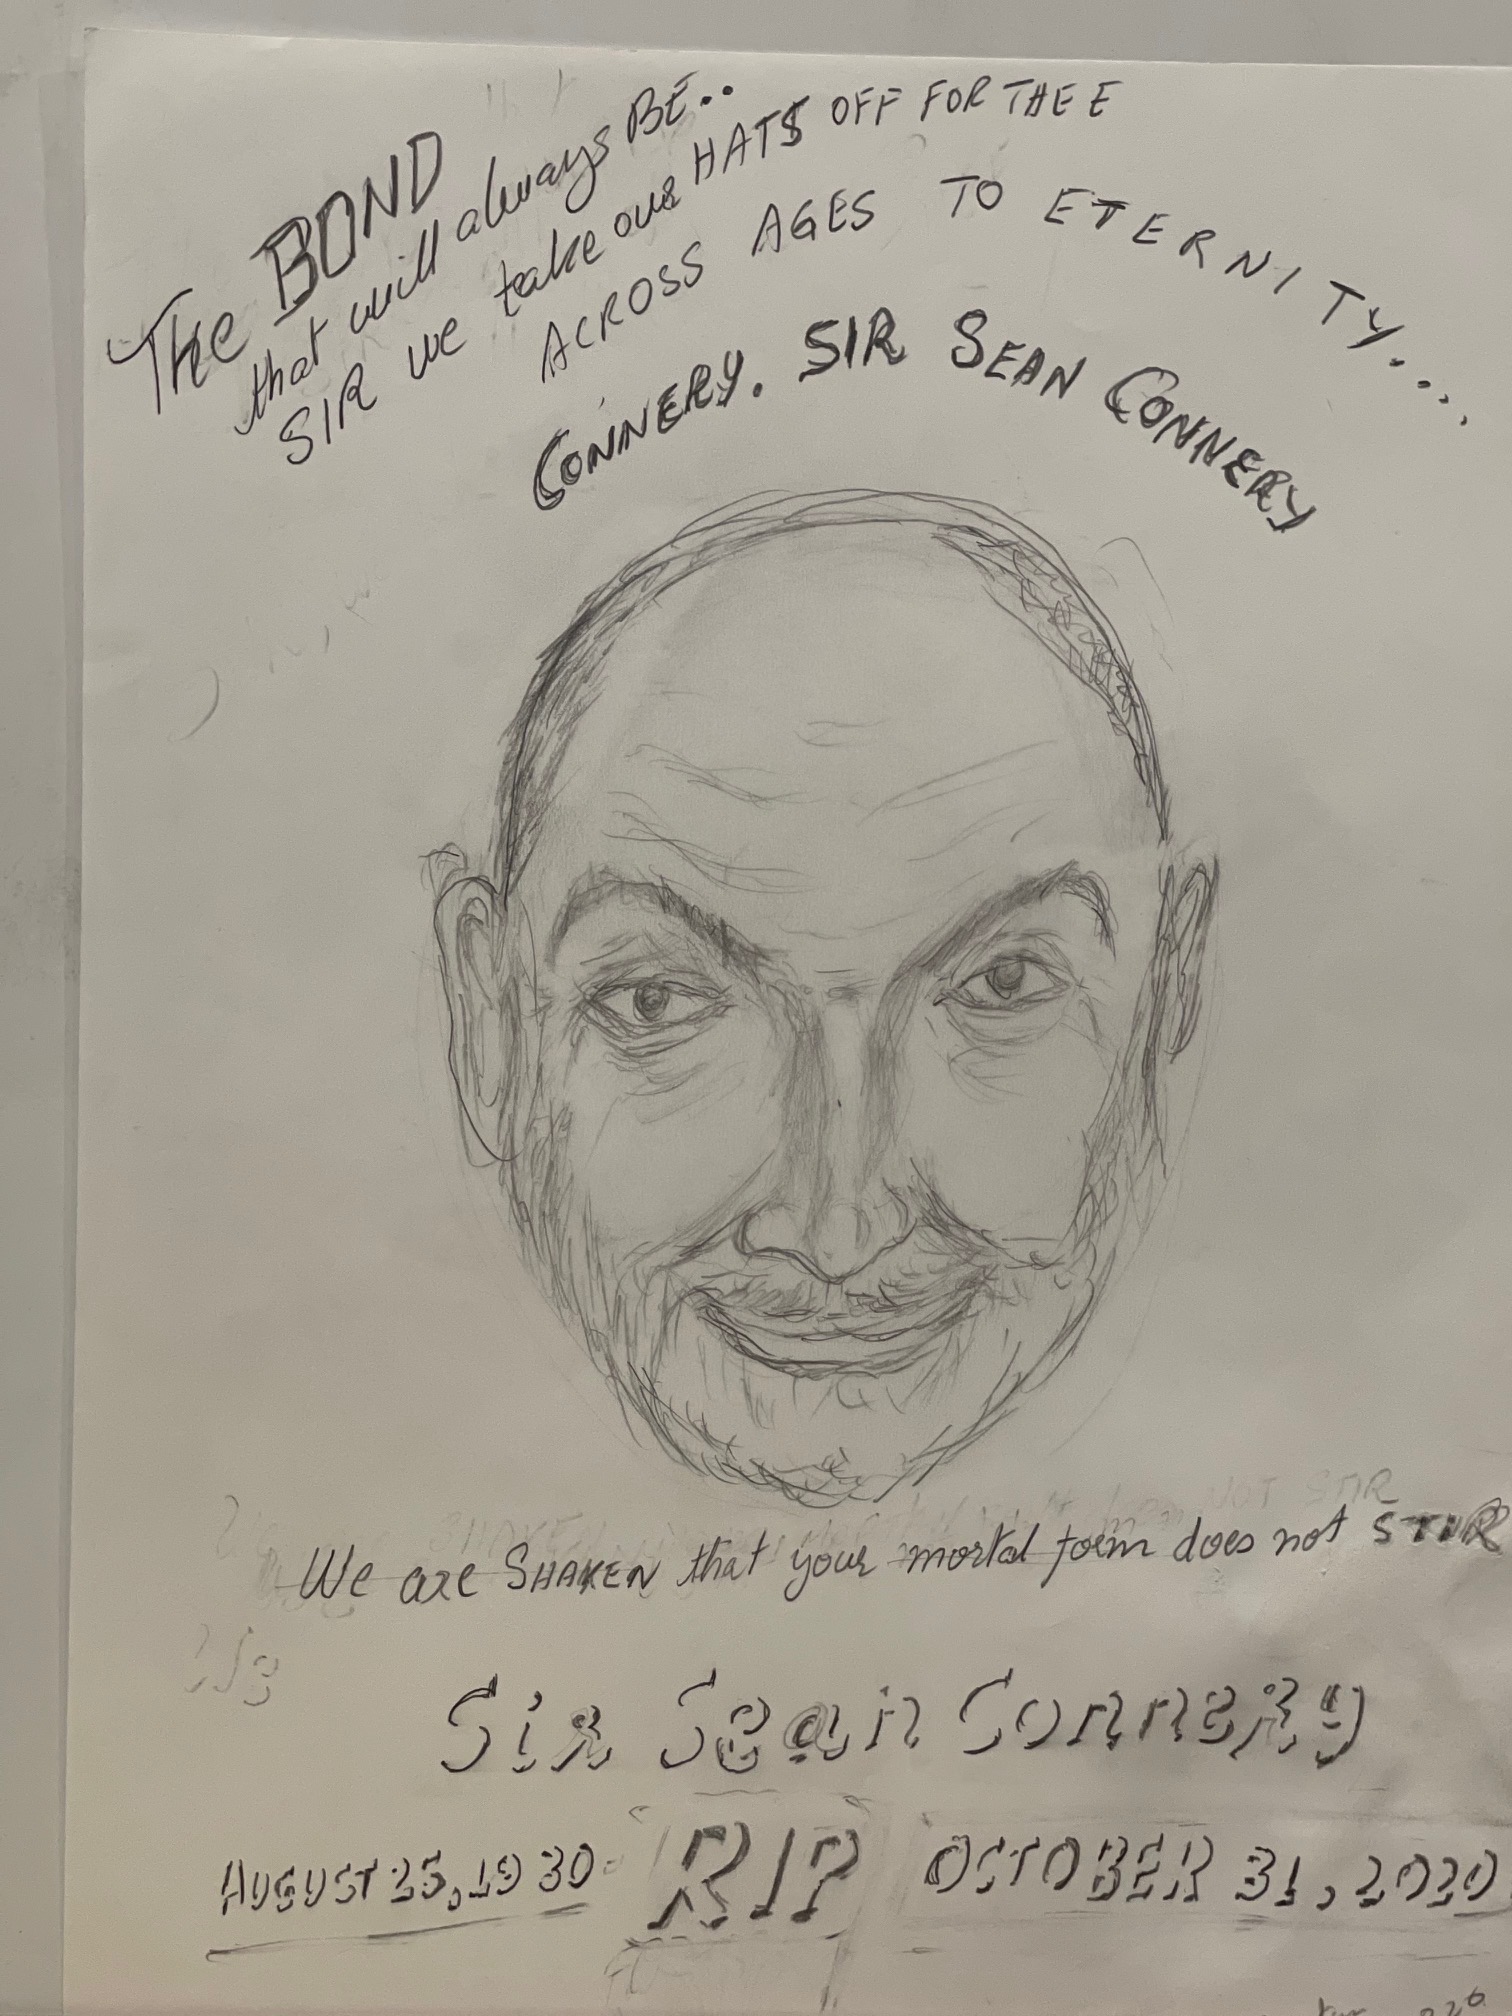 The BOND
that will always BE..
SIR we take our HATS OFF FOR THEE
ACROSS AGES TO ETERNITY....
CONNERY. SIR SEAN CONNERY
NOT STIR
We are SHAKEN that your mortal form does not STIR
Sir Sean Connery
AUGUST 25, 1930 RIP OCTOBER 31, 2020